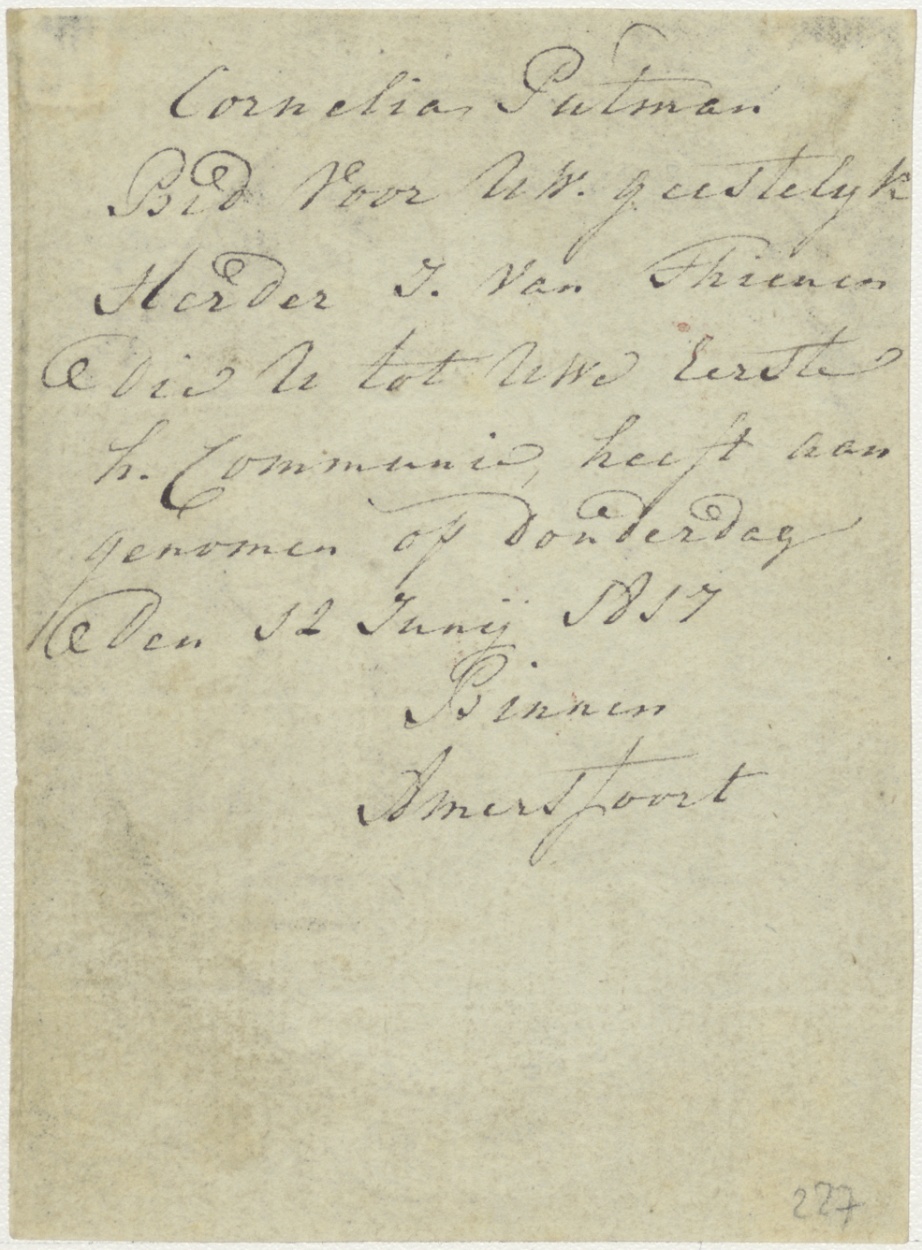 Cornelia Putman
Bid Voor UW. geestelyk
Herder J. Van Thienen
die U tot UWe Eerste
h. Communie, heeft aan
genomen op donderdag
den 12 Junij 1817
Binnen
Amersfoort
227